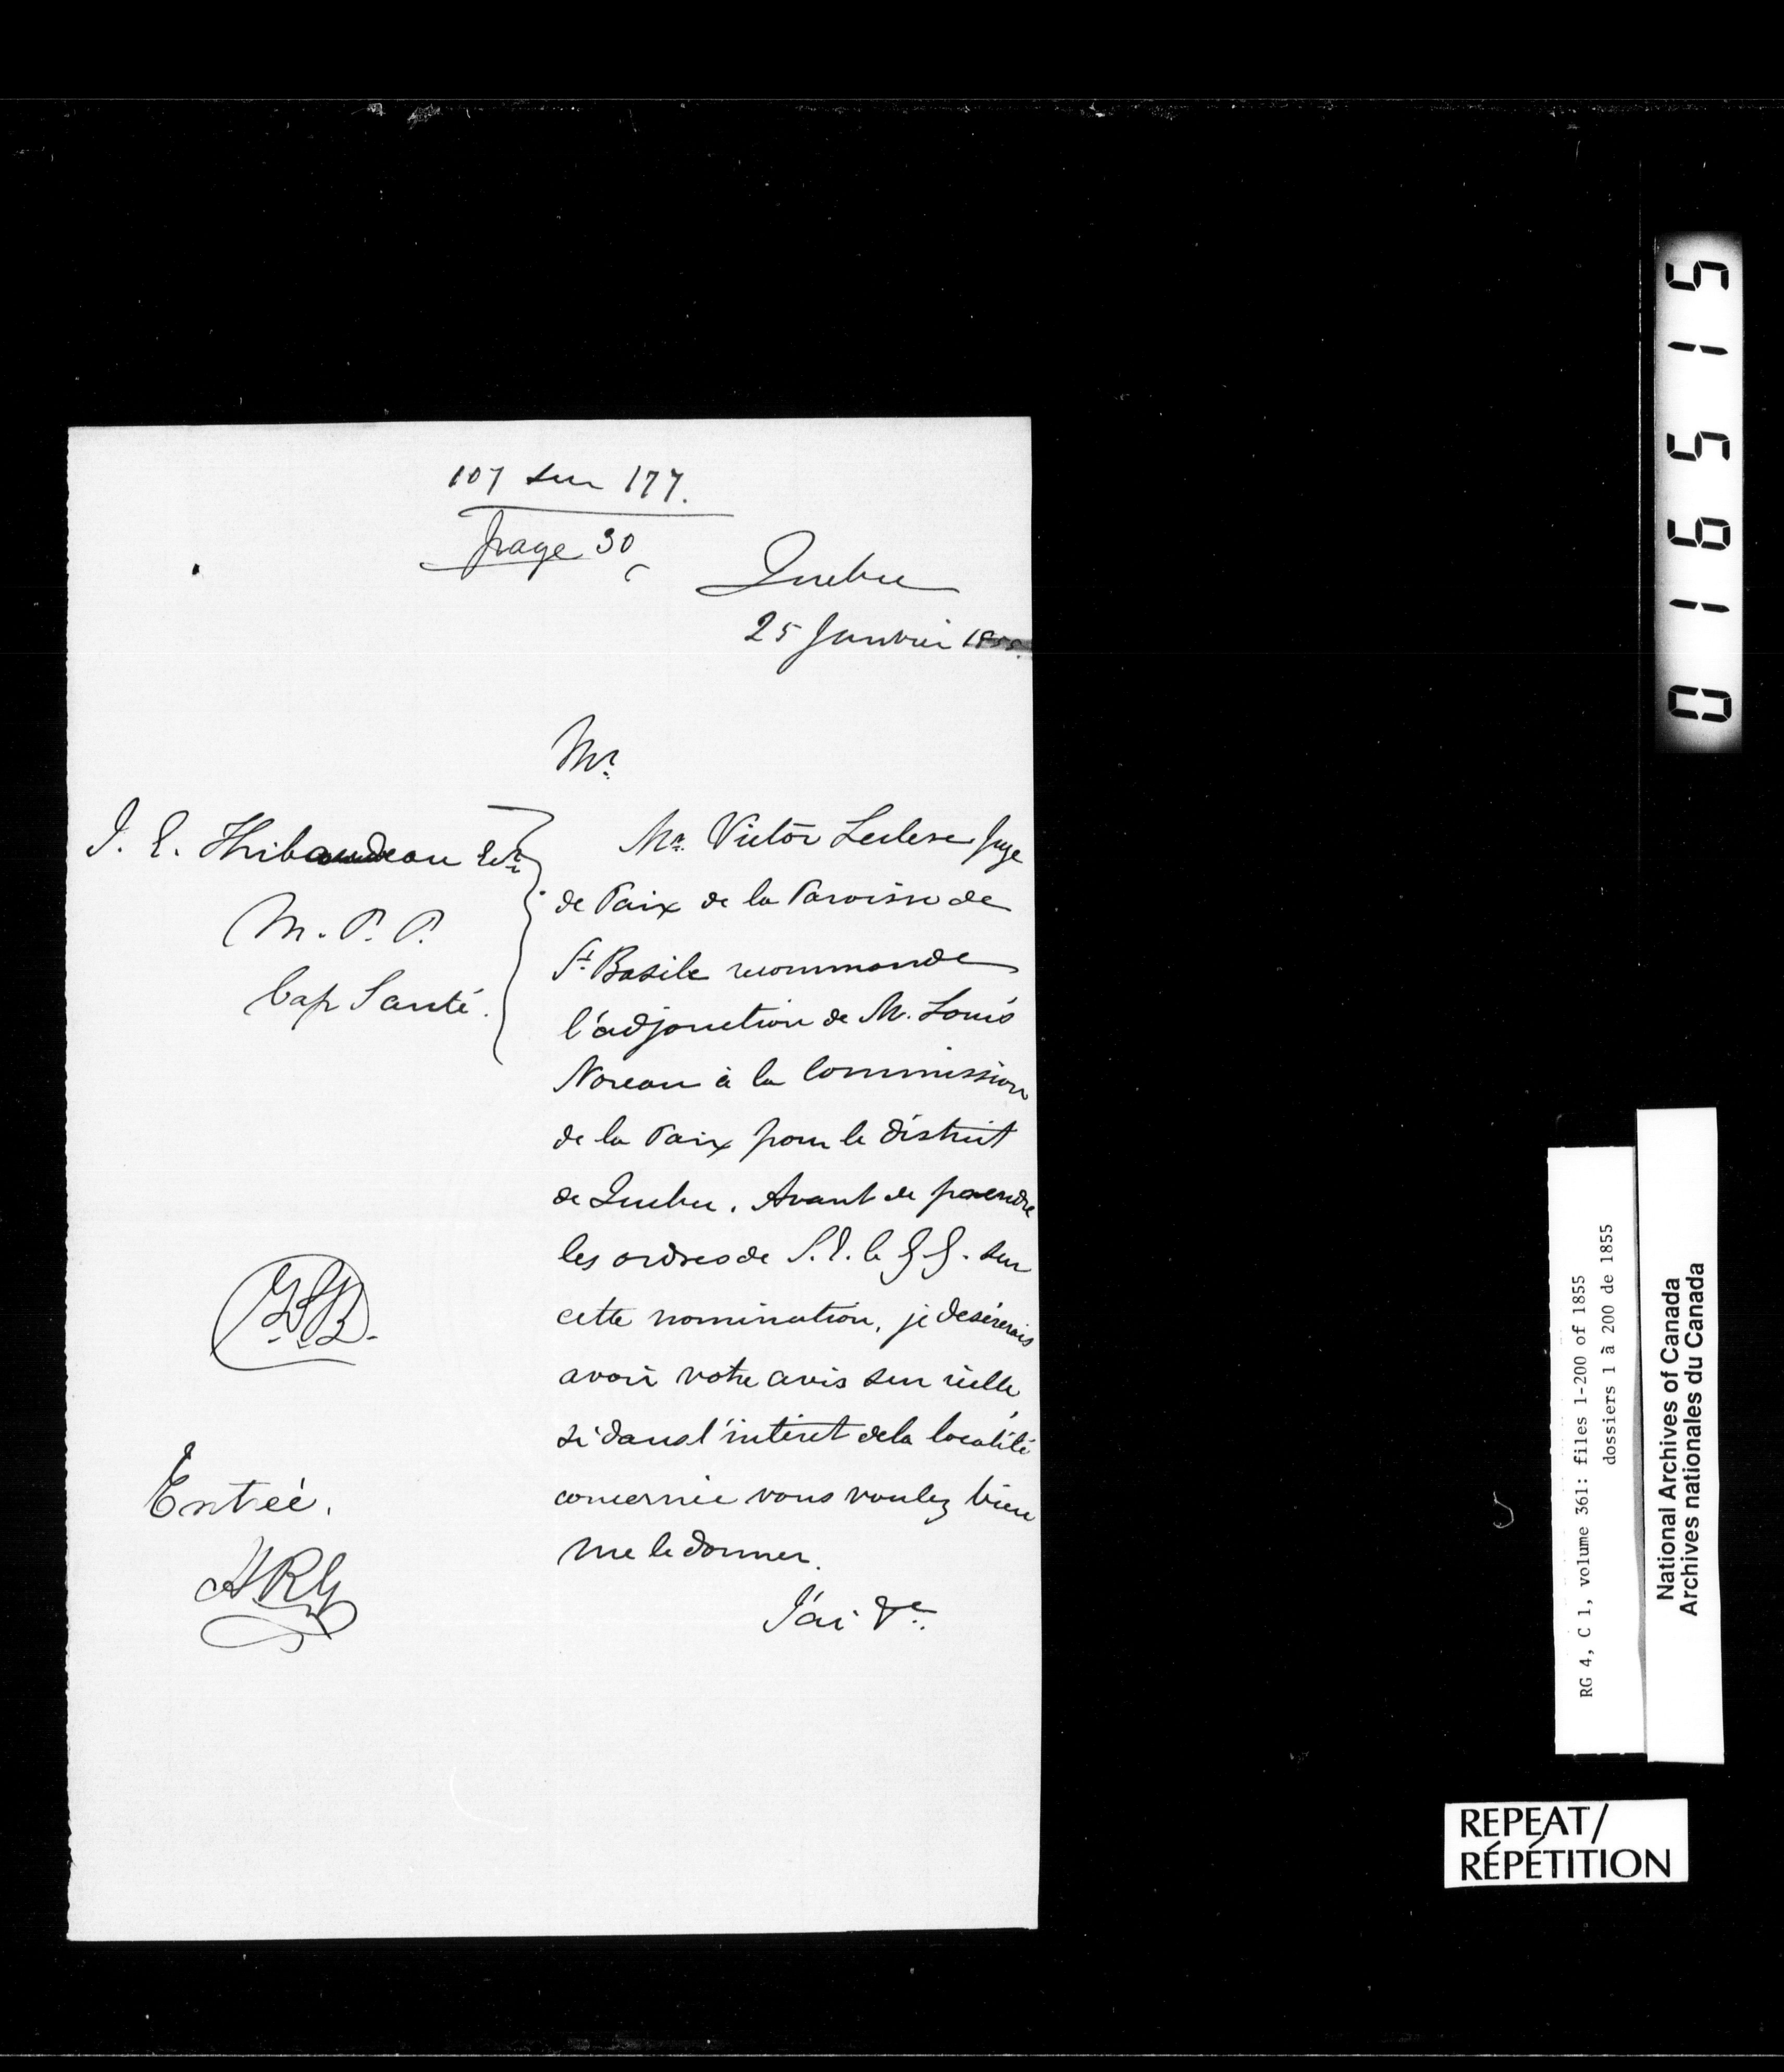 107 sur 177.
page 30
Quebec
25 Janvier 1855.
Mr.
J. E. Thibaudeau Ecr
M. P. P.
Cap Santé.
Mr. Victor Leclerc Juge
de Paix de la Paroisse de
St. Basile recommande
l'adjonction de M. Louis
Noreau à la Commission
de la Paix pour le district
de Quebec. Avant de prendre
les ordres de S. E. le G G. sur
cette nomination, je desirerais
avoir votre avis sur icelle,
si dans l'intéret de la localité
concernée vous voulez bien
me le donner.
J'ai &c.
Entrée.
016515
RG 4, C 1, volume 361: files 1-200 of 1855
dossiers 1 à 200 de 1855
National Archives of Canada
Archives nationales du Canada
REPEAT/
RÉPÉTITION